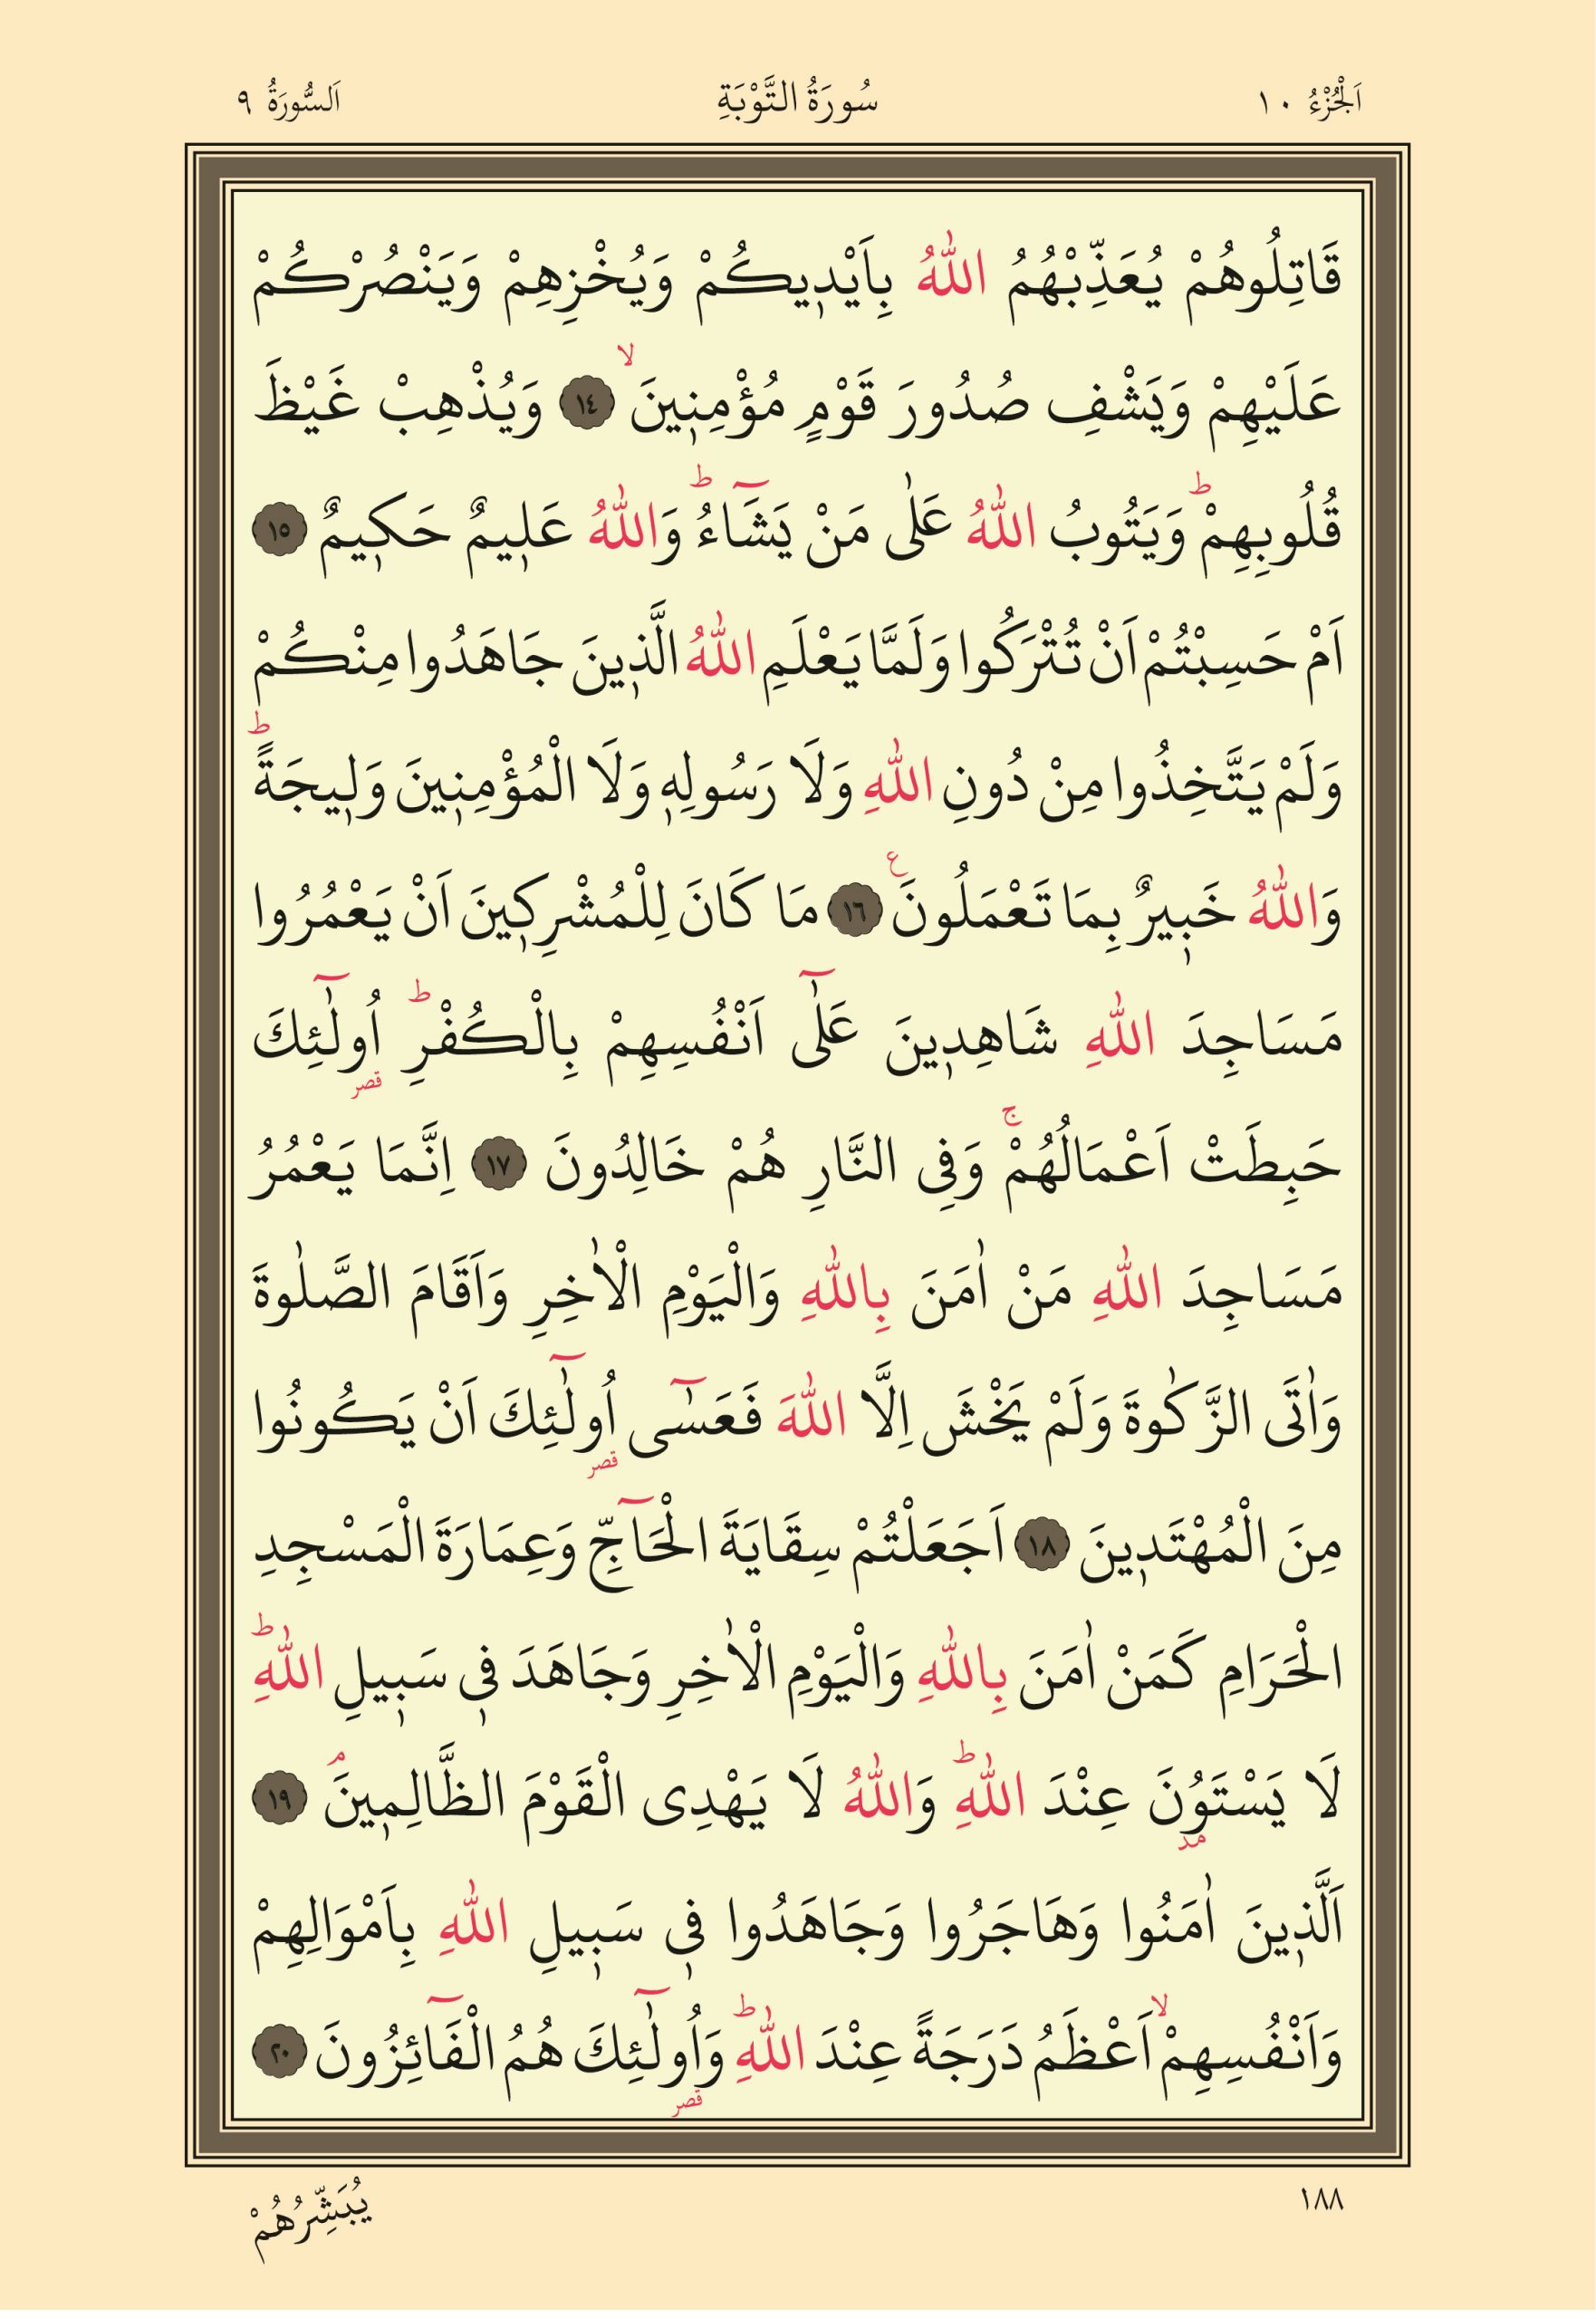 اَلْجُزْءُ ١٠ سُورَةُ التَّوْبَةِ اَلسُّورَةُ ٩
قَاتِلُوهُمْ يُعَذِّبْهُمُ اللّٰهُ بِاَيْد۪يكُمْ وَيُخْزِهِمْ وَيَنْصُرْكُمْ
عَلَيْهِمْ وَيَشْفِ صُدُورَ قَوْمٍ مُؤْمِن۪ينَۙ ﴿١٤﴾ وَيُذْهِبْ غَيْظَ
قُلُوبِهِمْۜ وَيَتُوبُ اللّٰهُ عَلٰى مَنْ يَشَٓاءُۜ وَاللّٰهُ عَل۪يمٌ حَك۪يمٌ ﴿١٥﴾
اَمْ حَسِبْتُمْ اَنْ تُتْرَكُوا وَلَمَّا يَعْلَمِ اللّٰهُ الَّذ۪ينَ جَاهَدُوا مِنْكُمْ
وَلَمْ يَتَّخِذُوا مِنْ دُونِ اللّٰهِ وَلَا رَسُولِه۪ وَلَا الْمُؤْمِن۪ينَ وَل۪يجَةًۜ
وَاللّٰهُ خَب۪يرٌ بِمَا تَعْمَلُونَ۟ ﴿١٦﴾ مَا كَانَ لِلْمُشْرِك۪ينَ اَنْ يَعْمُرُوا
مَسَاجِدَ اللّٰهِ شَاهِد۪ينَ عَلٰٓى اَنْفُسِهِمْ بِالْكُفْرِۜ اُو۬لٰٓئِكَ
حَبِطَتْ اَعْمَالُهُمْۚ وَفِي النَّارِ هُمْ خَالِدُونَ ﴿١٧﴾ اِنَّمَا يَعْمُرُ
مَسَاجِدَ اللّٰهِ مَنْ اٰمَنَ بِاللّٰهِ وَالْيَوْمِ الْاٰخِرِ وَاَقَامَ الصَّلٰوةَ
وَاٰتَى الزَّكٰوةَ وَلَمْ يَخْشَ اِلَّا اللّٰهَ فَعَسٰٓى اُو۬لٰٓئِكَ اَنْ يَكُونُوا
مِنَ الْمُهْتَد۪ينَ ﴿١٨﴾ اَجَعَلْتُمْ سِقَايَةَ الْحَٓاجِّ وَعِمَارَةَ الْمَسْجِدِ
الْحَرَامِ كَمَنْ اٰمَنَ بِاللّٰهِ وَالْيَوْمِ الْاٰخِرِ وَجَاهَدَ ف۪ي سَب۪يلِ اللّٰهِۜ
لَا يَسْتَوُ۫نَ عِنْدَ اللّٰهِۜ وَاللّٰهُ لَا يَهْدِي الْقَوْمَ الظَّالِم۪ينَۢ ﴿١٩﴾
اَلَّذ۪ينَ اٰمَنُوا وَهَاجَرُوا وَجَاهَدُوا ف۪ي سَب۪يلِ اللّٰهِ بِاَمْوَالِهِمْ
وَاَنْفُسِهِمْۙ اَعْظَمُ دَرَجَةً عِنْدَ اللّٰهِۜ وَاُو۬لٰٓئِكَ هُمُ الْفَٓائِزُونَ ﴿٢٠﴾
١٨٨ يُبَشِّرُهُمْ